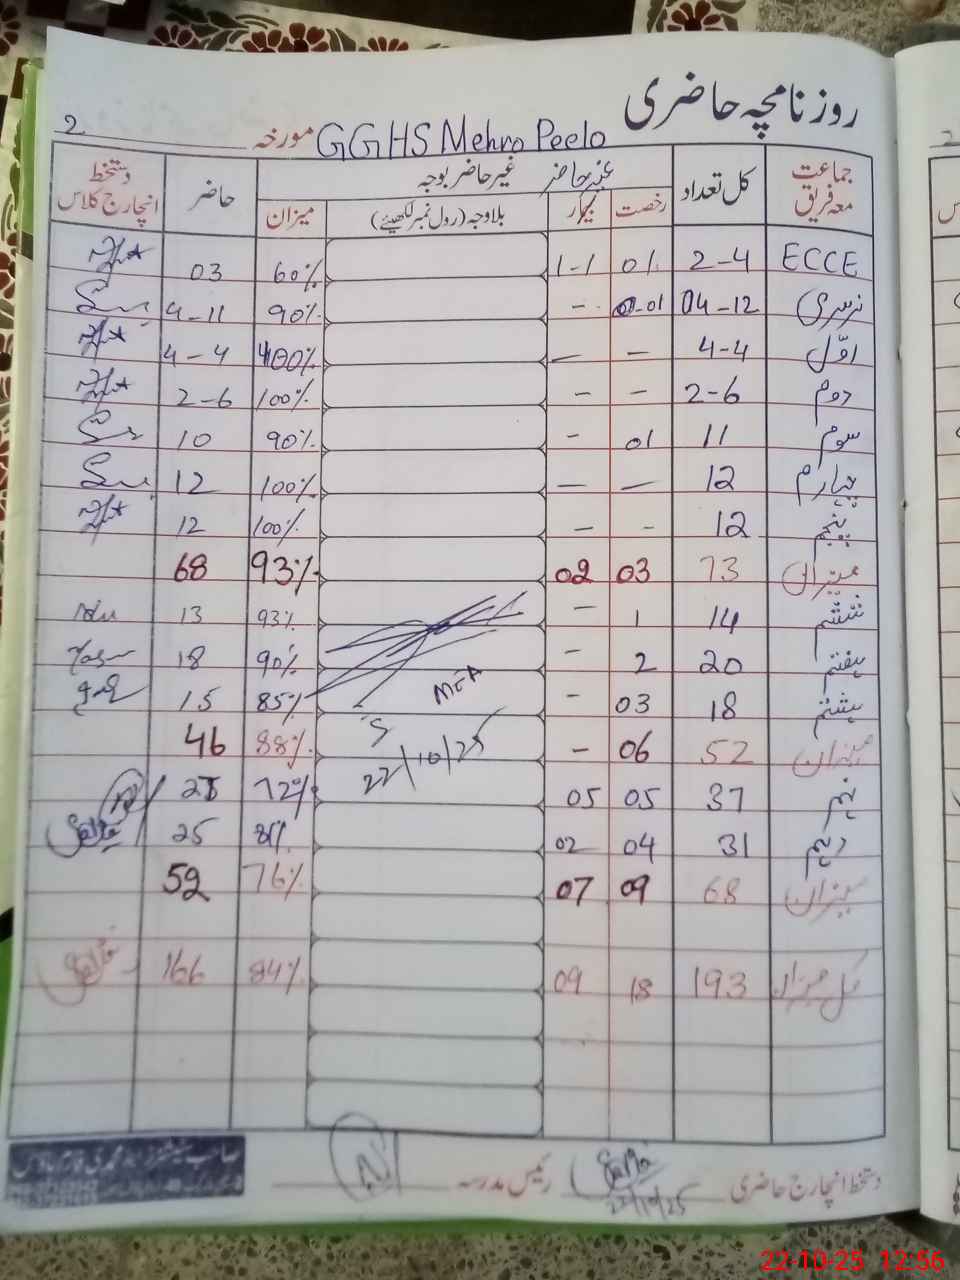 روزنامچہ حاضری
2 مورخہ GGHS Mehro Peelo
جماعت معہ فریق کل تعداد غیر حاضر بوجہ حاضر دستخط انچارج کلاس
رخصت بیمار بلاوجہ (رول نمبر لکھیئے) میزان
ECCE 2-4 01 1-1 60% 03
نرسری 04-12 01 - 90% 4-11
اوّل 4-4 - - 100% 4-4
دوم 2-6 - - 100% 2-6
سوم 11 01 - 90% 10
چہارم 12 - - 100% 12
پنجم 12 - - 100% 12
میزان 73 03 02 93% 68
ششم 14 1 - 93% 13
ہفتم 20 2 - 90% 18
ہشتم 18 03 - 85% 15
MEA
میزان 52 06 - 88% 46
22/10/25
نہم 37 05 05 72%
دہم 31 04 02 25
میزان 68 09 07 76% 52
کل میزان 193 18 09 84% 166
دستخط انچارج حاضری رئیس مدرسہ
22/10/25
22-10-25 12:56